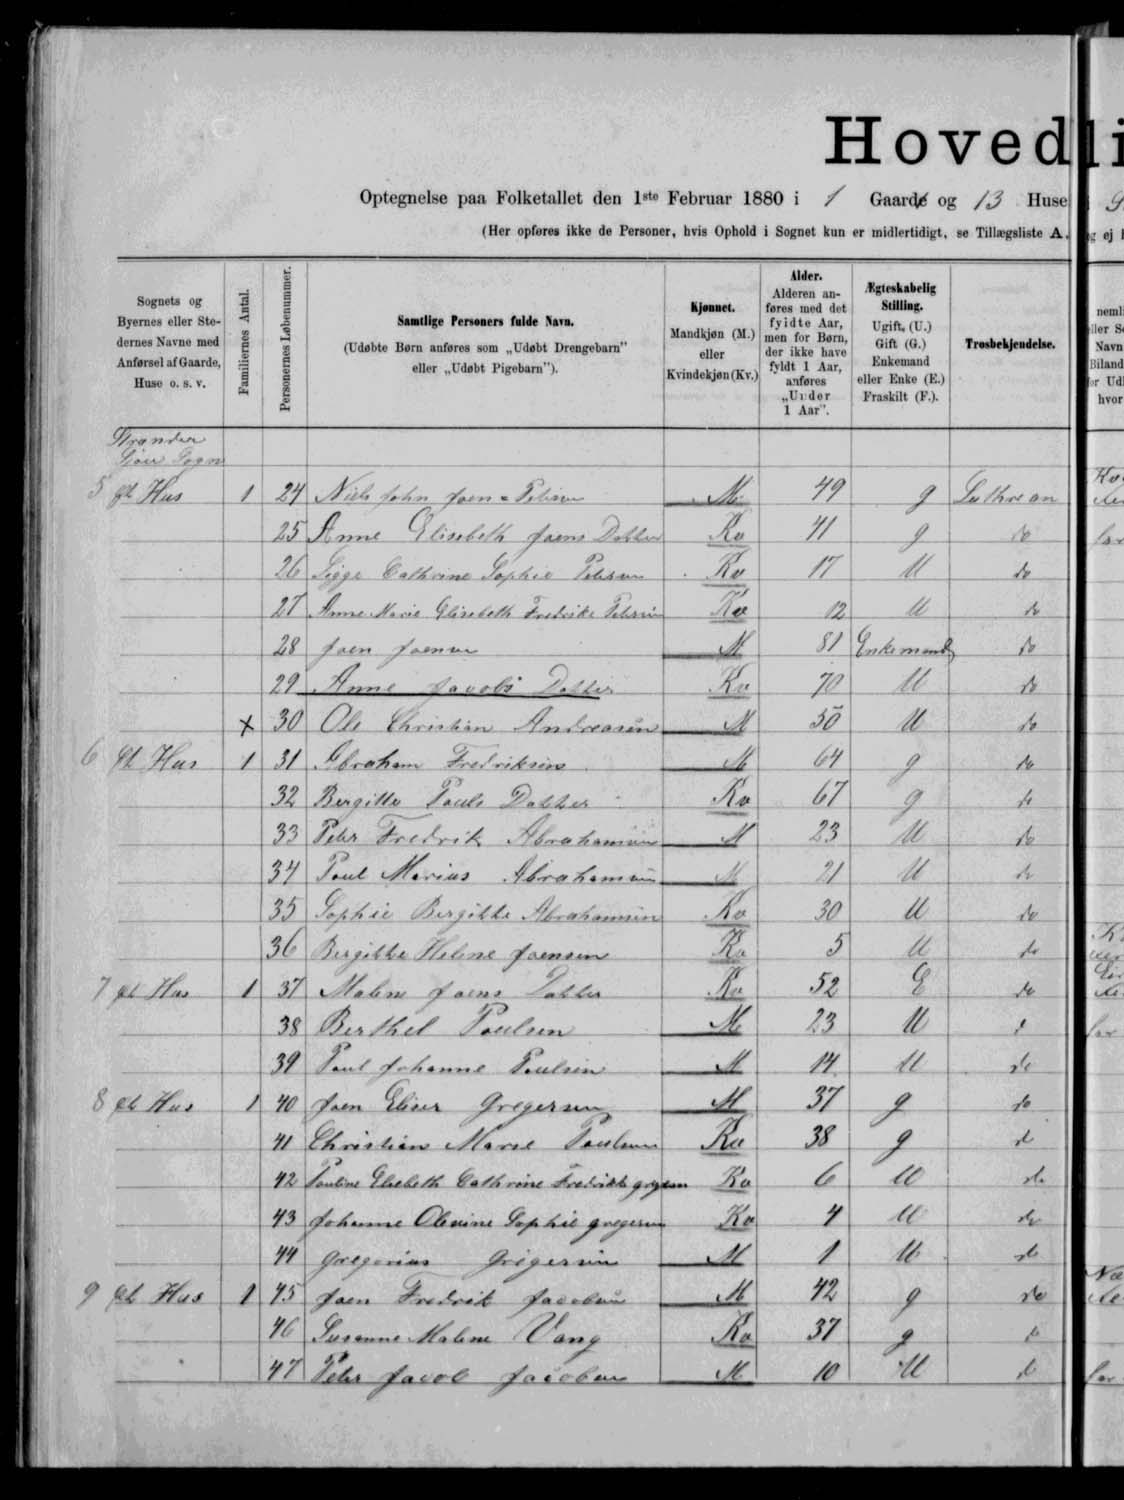 Hovedli
Optegnelse paa Folketallet den 1ste Februar 1880 i 1 Gaarde og 13 Huse
(Her opføres ikke de Personer, hvis Ophold i Sognet kun er midlertidigt, se Tillægsliste A.
Sognets og Byernes eller Stedernes Navne med Anførsel af Gaarde, Huse o. s. v.
Familiernes Antal.
Personernes Løbenummer.
Samtlige Personers fulde Navn.
(Udøbte Børn anføres som „Udøbt Drengebarn” eller „Udøbt Pigebarn”).
Kjønnet.
Mandkjøn (M.) eller Kvindekjøn (Kv.)
Alder.
Alderen anføres med det fyldte Aar, men for Børn, der ikke have fyldt 1 Aar, anføres „Under 1 Aar”.
Ægteskabelig Stilling.
Ugift, (U.) Gift (G.) Enkemand eller Enke (E.) Fraskilt (F.).
Trosbekjendelse.
Strander
Sogn
5 Hus 1 24 Niels John Joen = Petersen M 49 g Luthrean
25 Anne Elisebeth Joens Datter Kv 41 g do
26 Sigge Cathrine Sophie Petersen Kv 17 U do
27 Anne Marie Elisebeth Fredrike Petersen Kv 12 U do
28 Joen Joensen M 81 Enkemand do
29 Anne Jacobs Datter Kv 70 U do
x 30 Ole Christian Andreasen M 50 U do
6 Hus 1 31 Abraham Fredriksen M 64 g do
32 Bergitte Pouls Datter Kv 67 g do
33 Peter Fredrik Abrahamsen M 23 U do
34 Poul Marius Abrahamsen M 21 U do
35 Sophie Bergitte Abrahamsen Kv 30 U do
36 Bergitte Helene Joensen Kv 5 U do
7 Hus 1 37 Malene Joens Datter Kv 52 E do
38 Berthel Poulsen M 23 U d
39 Poul Johanne Poulsen M 14 U do
8 Hus 1 40 Joen Elieser Gregersen M 37 g do
41 Christian Marie Poulsen Kv 38 g d
42 Pauline Elsebeth Cathrine Fredrikke gregersen Kv 6 U do
43 Johanne Olevine Sophie gregersen Kv 4 U do
44 gregorius Gregersen M 1 U do
9 Hus 1 45 Joen Fredrik Jacobsen M 42 g do
46 Susanne Malene Vang Kv 37 g d
47 Peter Jacob Jacobsen M 10 U d